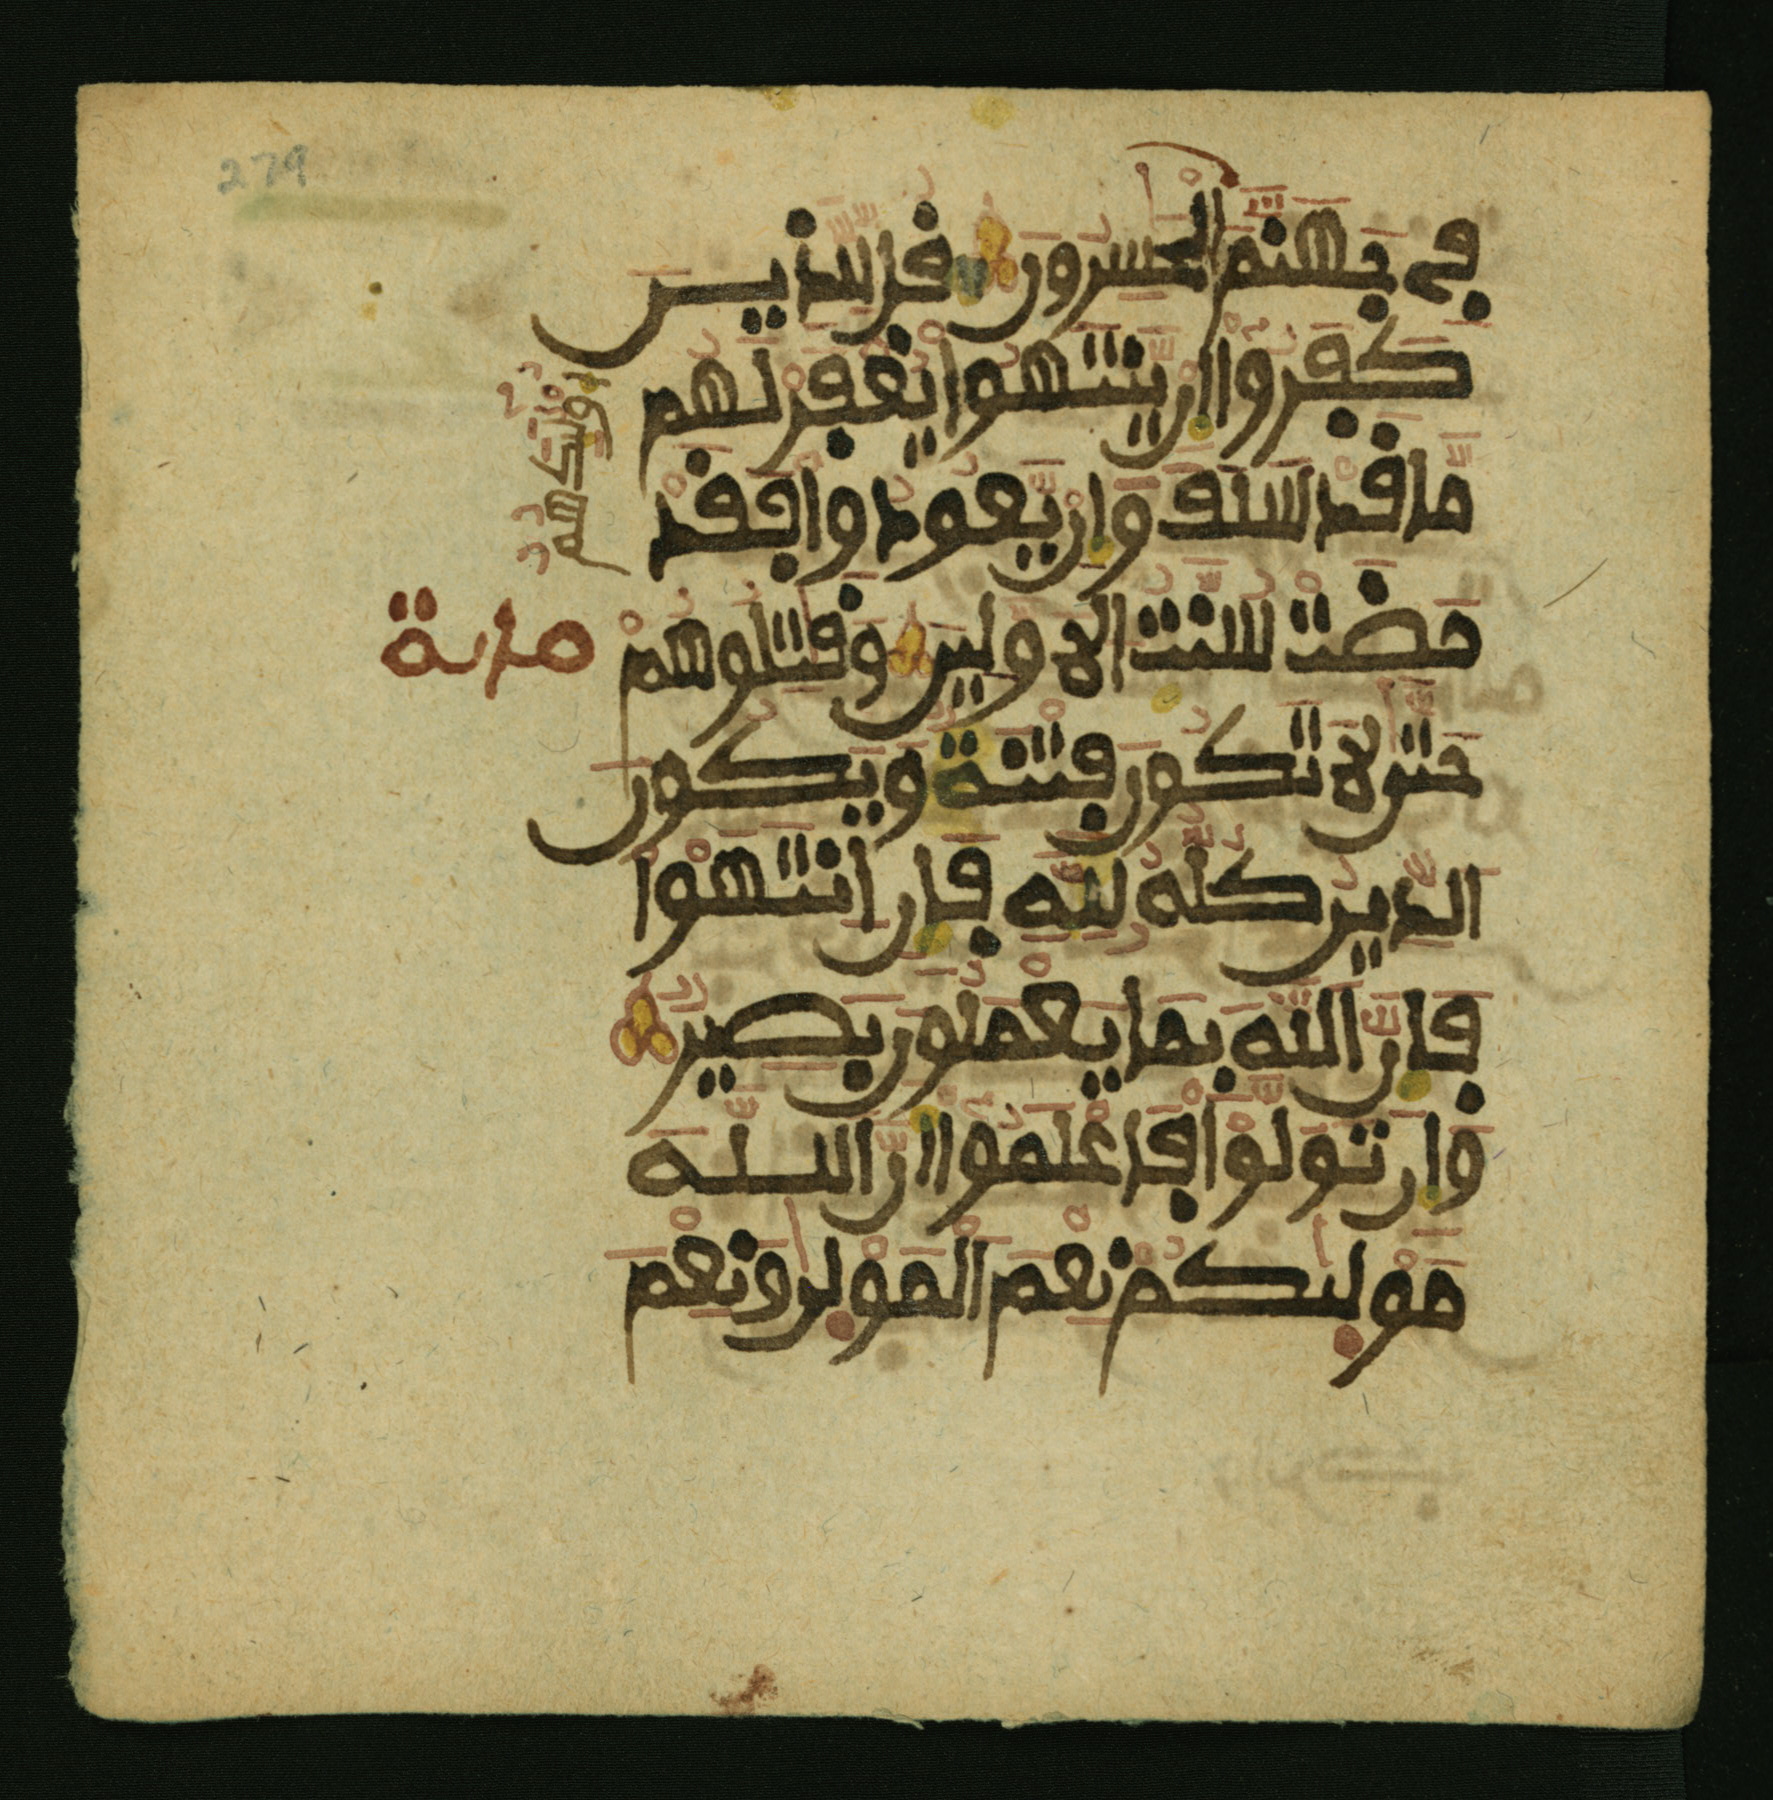 279
في جهنم الخسرون قل للذين
كفروا ان ينتهوا يغفر لهم
اوليك هم
ما قد سلف وان يعودوا فقد
مضت سنت الاولين وقتلوهم
حتى لا تكون فتنة ويكون
الدين كله لله فان انتهوا
فان الله بما يعملون بصير
وان تولوا فاعلموا ان الله
موليكم نعم المولى ونعم